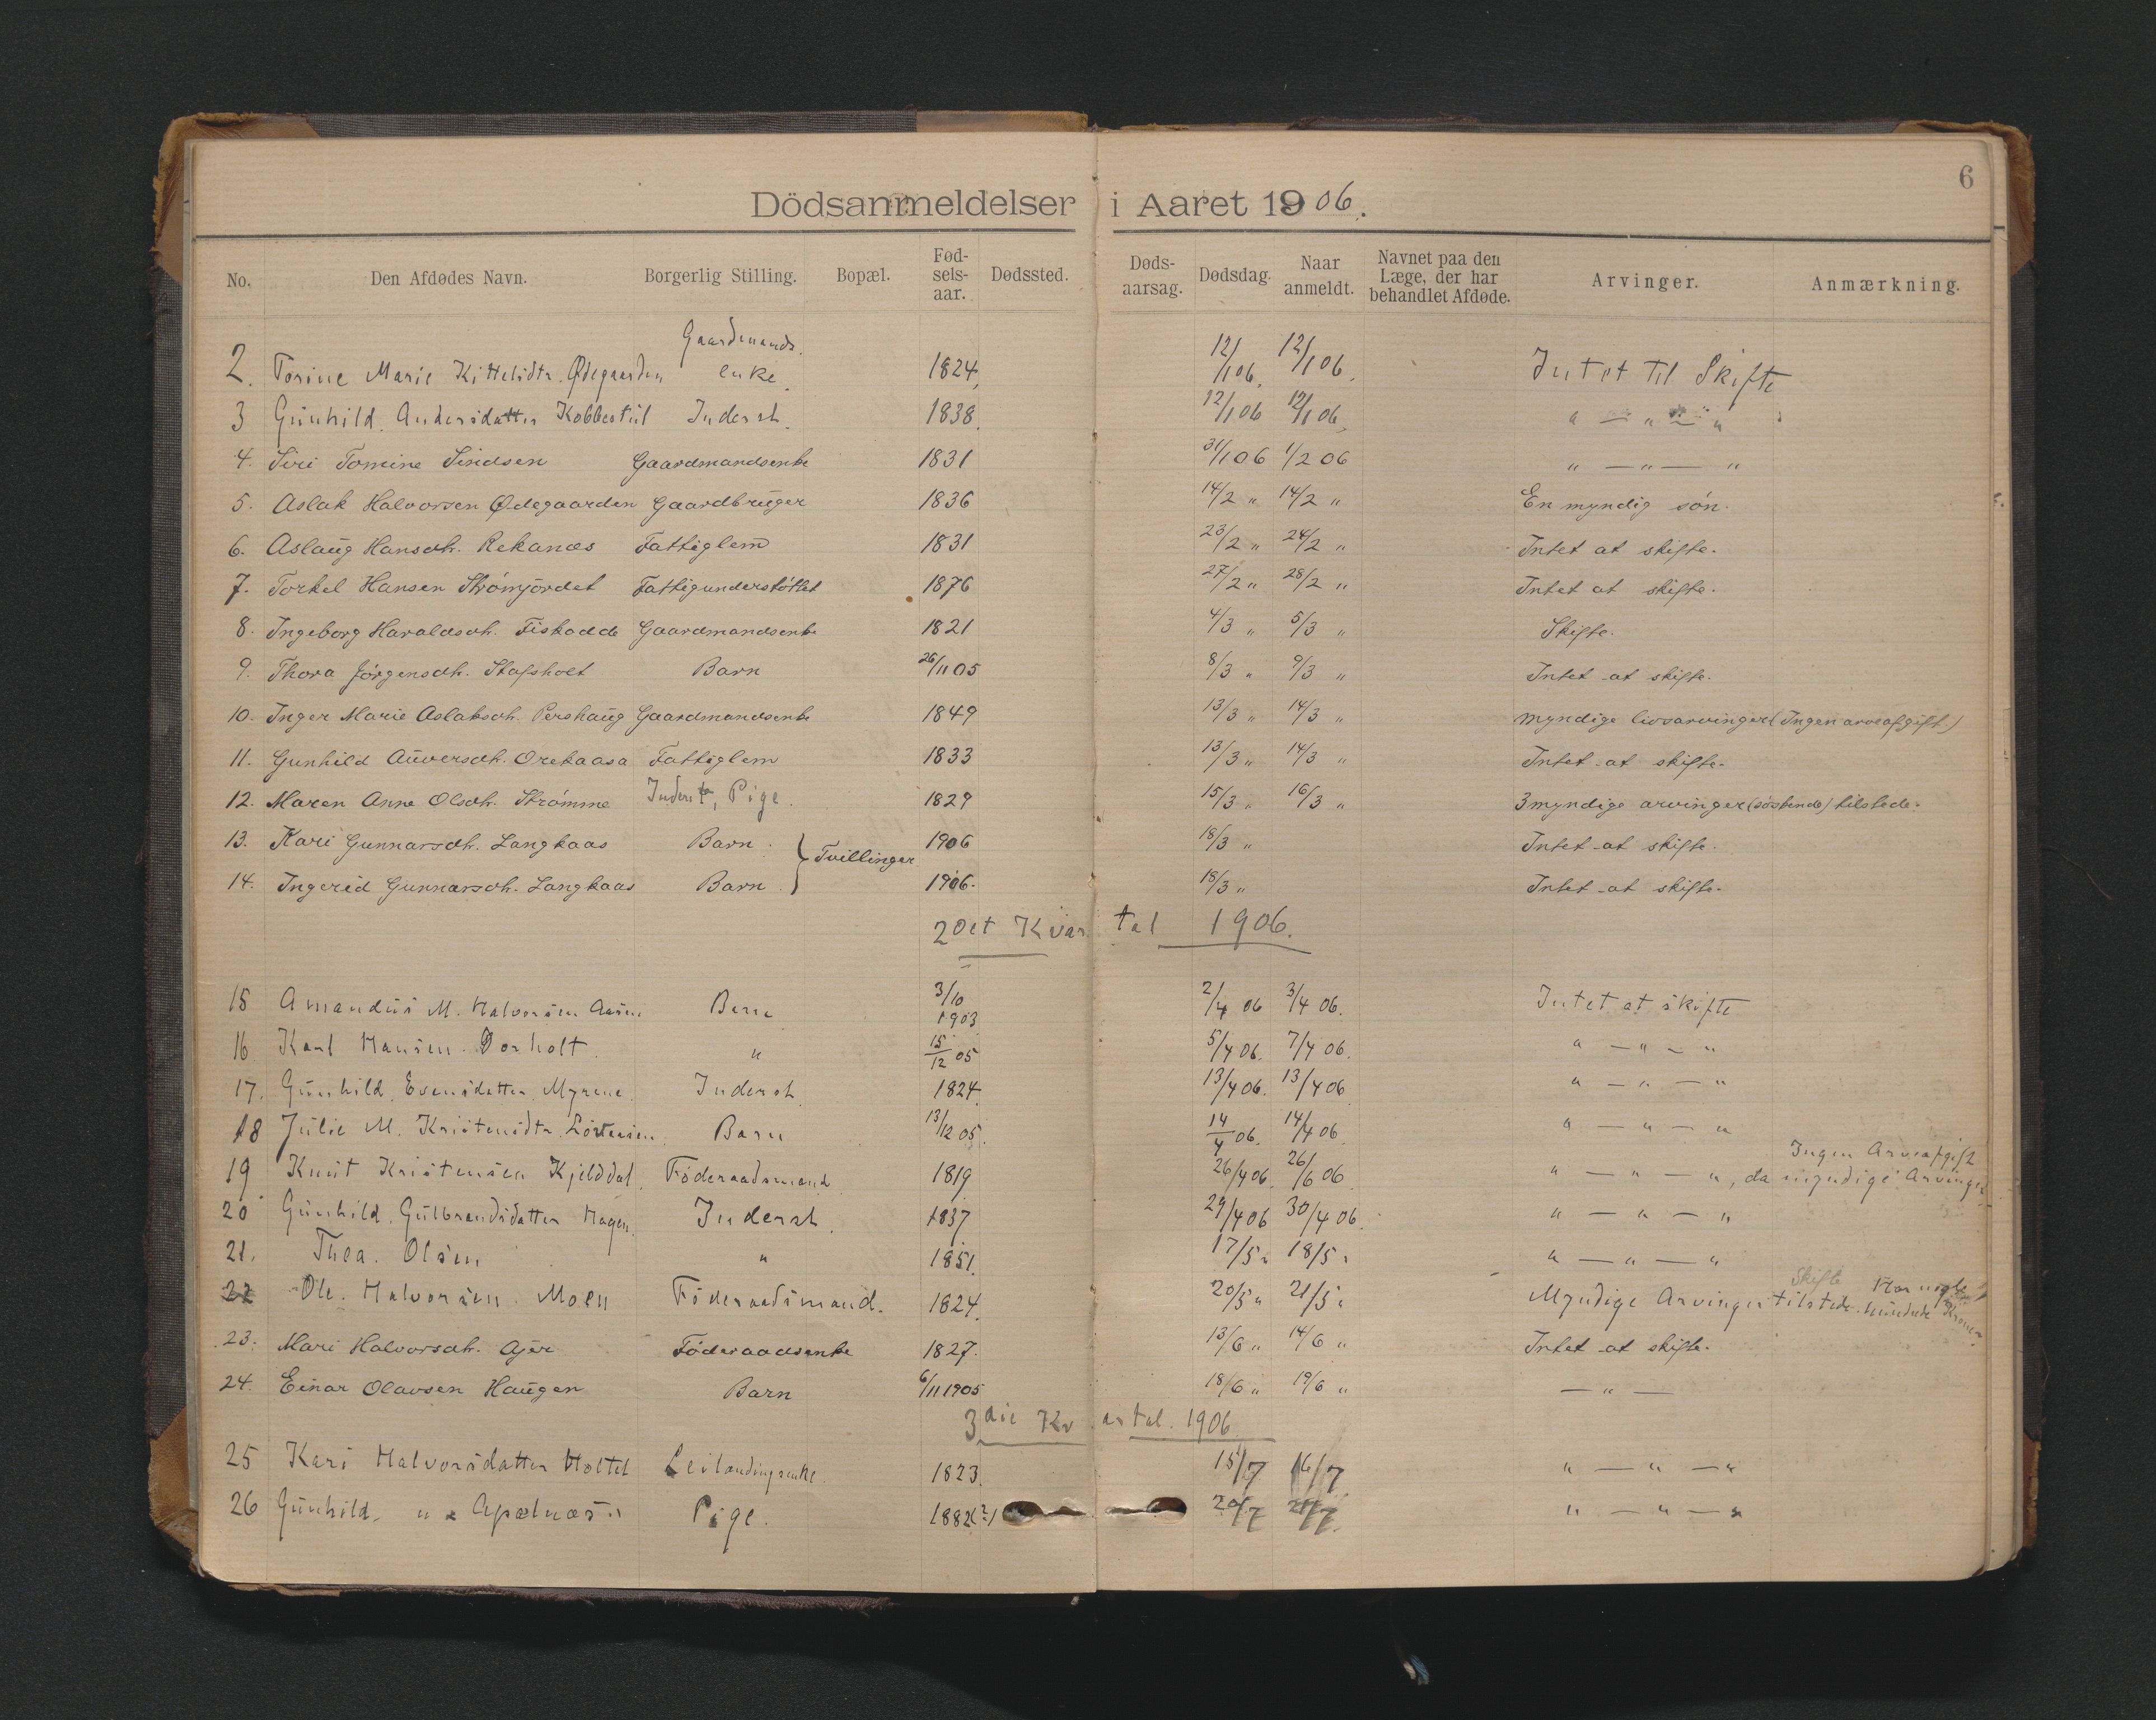 6
Dödsanmeldelser i Aaret 1906.
No. Den Afdødes Navn. Borgerlig Stilling. Bopæl. Fødselsaar. Dødssted. Dødsaarsag. Dødsdag. Naar anmeldt. Navnet paa den Læge, der har behandlet Afdøde. Arvinger. Anmærkning.
2. Torine Marie Kittelsdtr. Ødegaarden Gaardmands enke. 1824, 12/1 06, 12/1 06. Intet til Skifte
3 Gunhild Andersdatter Kobbestul Inderst. 1838. 12/1 06 12/1 06, " — " — "
4. Siri Tomine Sindsen Gaardmandsenke 1831 31/1 06 1/2 06 " — " — "
5. Aslak Halvorsen Ødegaarden Gaardbruger 1836 14/2 " 14/2 " En myndig søn.
6. Aslaug Hansdtr. Rekanæs Fattiglem 1831 23/2 " 24/2 " Intet at skifte.
7. Torkel Hansen Strømjordet Fattigunderstøttet 1876 27/2 " 28/2 " Intet at skifte.
8. Ingeborg Haraldsdtr. Fiskodde Gaardmandsenke 1821 4/3 " 5/3 " Skifte.
9. Thora Jørgensdtr. Stafsholt Barn 26/11 05 8/3 " 9/3 " Intet at skifte.
10. Inger Marie Aslaksdtr. Pershaug Gaardmandsenke 1849 13/3 " 14/3 " Myndige livsarvinger (Ingen arveafgift)
11. Gunhild Auversdtr. Orekaasa Fattiglem 1833 13/3 " 14/3 " Intet at skifte.
12. Maren Anne Olsdtr. Strømme Inderst, Pige. 1829 15/3 " 16/3 " 3 myndige arvinger (søskende) tilstede.
13. Kari Gunnarsdtr. Langkaas Barn. } Tvillinger 1906 18/3 " Intet at skifte.
14. Ingerid Gunnarsdtr. Langkaas Barn. 1906. 18/3 " Intet at skifte.
2det Kvartal 1906.
15 Amandus M. Halvorsen Aasen Barn 3/10 1903 2/4 06 3/4 06. Intet at skifte
16 Karl Hansen Dorholt. " 15/12 05 5/4 06. 7/4 06. " — " — "
17. Gunhild Evensdatter Myrene. Inderst 1824. 13/4 06. 13/4 06 " — " — "
18 Julie M. Kristensdtr. Barn 13/12 05. 14/4 06. 14/4 06 " — " — "
19 Knut Kristensen Kjelddal. Föderaadsmand 1819 26/4 06 26/6 06 " — " — ", da myndige Arvinger Ingen Arveafgift
20 Gunhild Gulbrandsdatter Hagen. Inderst. 1837 29/4 06 30/4 06. " — " — "
21. Thea Olsen " 1851. 17/5 " 18/5 " " — " — "
22 Ole Halvorsen Moen Föderaadsmand. 1824. 20/5 " 21/5 " Myndige Arvinger tilstede. Skifte Har nogle hundrede Kroner
23. Mari Halvorsdtr. Ajer Föderaadsenke 1827. 13/6 " 14/6 " Intet at skifte.
24. Einar Olavsen Haugen Barn 6/11 1905 18/6 " 19/6 " — " —
3die Kvartal. 1906
25 Kari Halvorsdatter Holtet Leilændingsenke. 1823. 15/7 16/7 " — " — "
26 Gunhild " Apalnæs Pige. 1882(?) 20/7 21/7. " — " — "